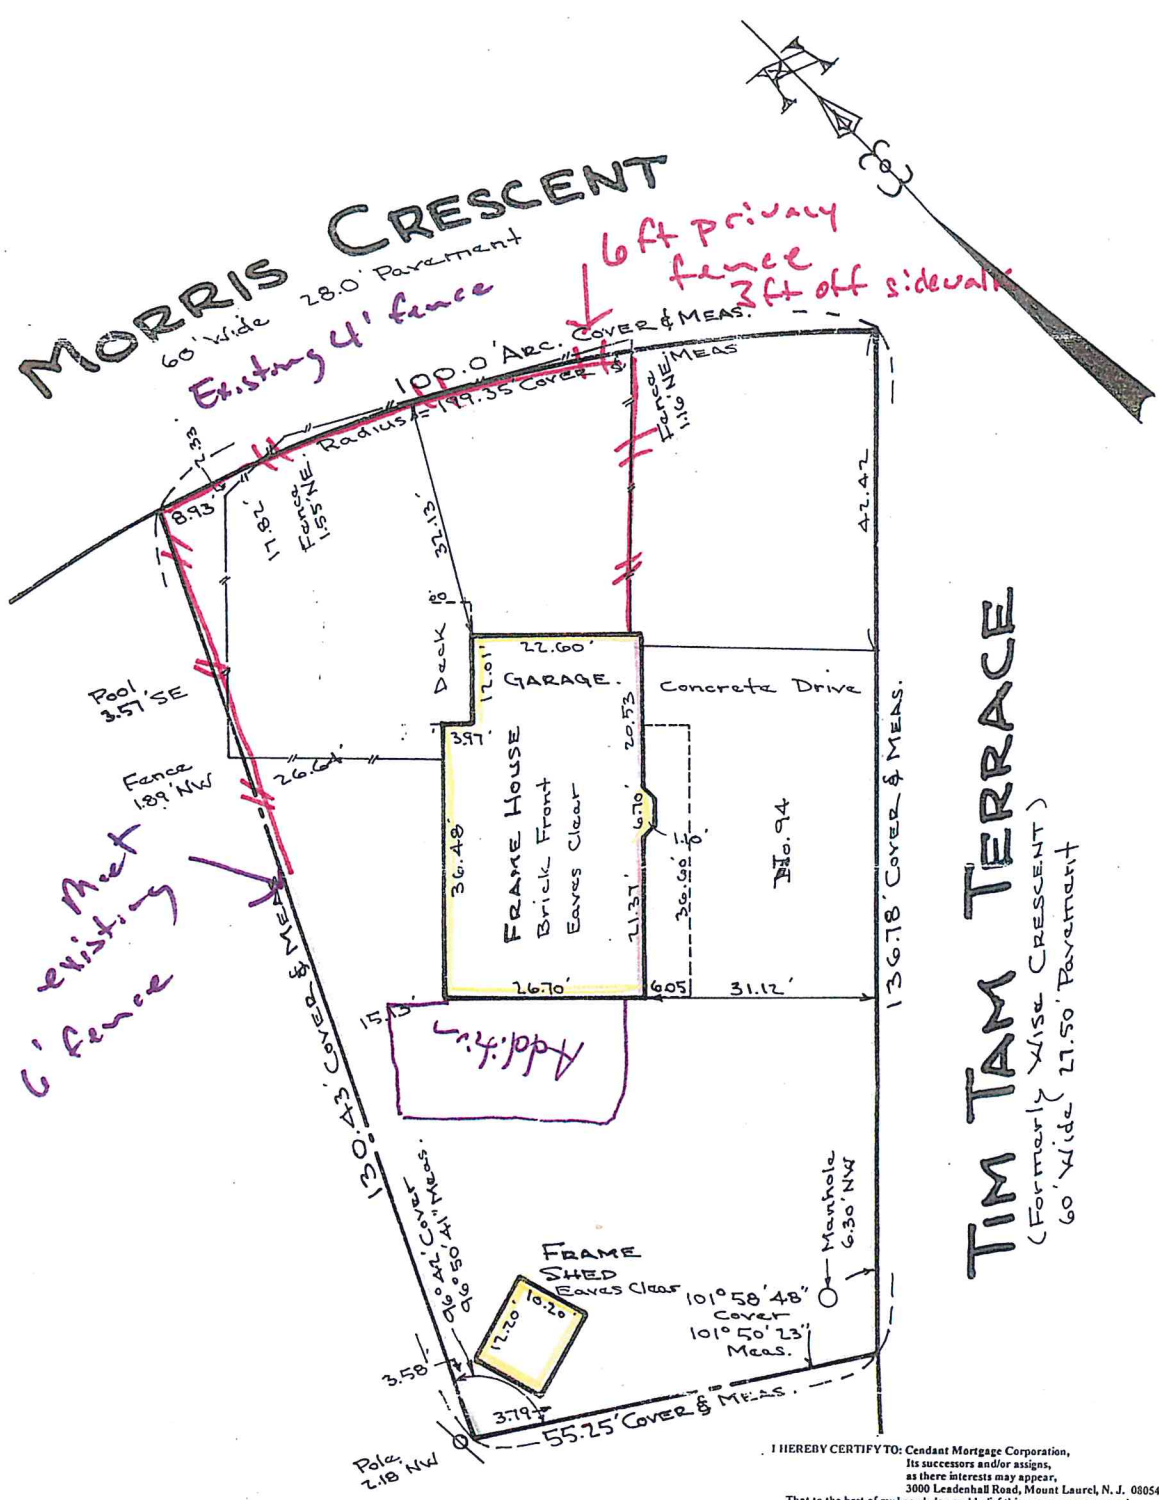 MORRIS CRESCENT
60' Wide 28.0' Pavement
Existing 4' fence
6ft privacy
fence
3ft off sidewalk
100.0' Arc. COVER & MEAS.
Radius = 199.35' Cover & MEAS
2.33'
8.93'
17.82'
Fence
1.55' NE.
32.13'
Fence
1.16' NE
42.42
Deck
8'
12.01'
22.60'
GARAGE.
Concrete Drive
Pool
3.57' SE
Fence
1.89' NW
26.64'
3.97'
20.53
FRAME HOUSE
Brick Front
Eaves Clear
36.48'
6.70'
21.37'
36.60'
26.70
6.05
31.12'
15.13'
136.78' COVER & MEAS.
TIM TAM TERRACE
(Formerly Wise CRESCENT)
60' Wide 27.50' Pavement
Meet
existing
6' fence
Addition
130.43' COVER & MEAS.
96° 42' Cover
96° 50' 41" Meas.
FRAME
SHED
Eaves Clear
10.20'
12.20'
Manhole
6.30' NW
101° 58' 48"
Cover
101° 50' 23"
Meas.
3.58'
3.79
55.25' COVER & MEAS.
Pole
2.18' NW
I HEREBY CERTIFY TO: Cendant Mortgage Corporation,
Its successors and/or assigns,
as there interests may appear,
3000 Leadenhall Road, Mount Laurel, N. J. 08054